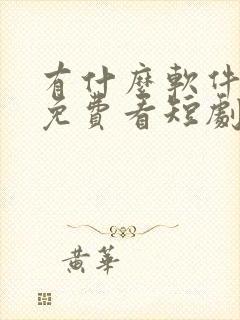 有什麼軟件
免費看短劇
黃華